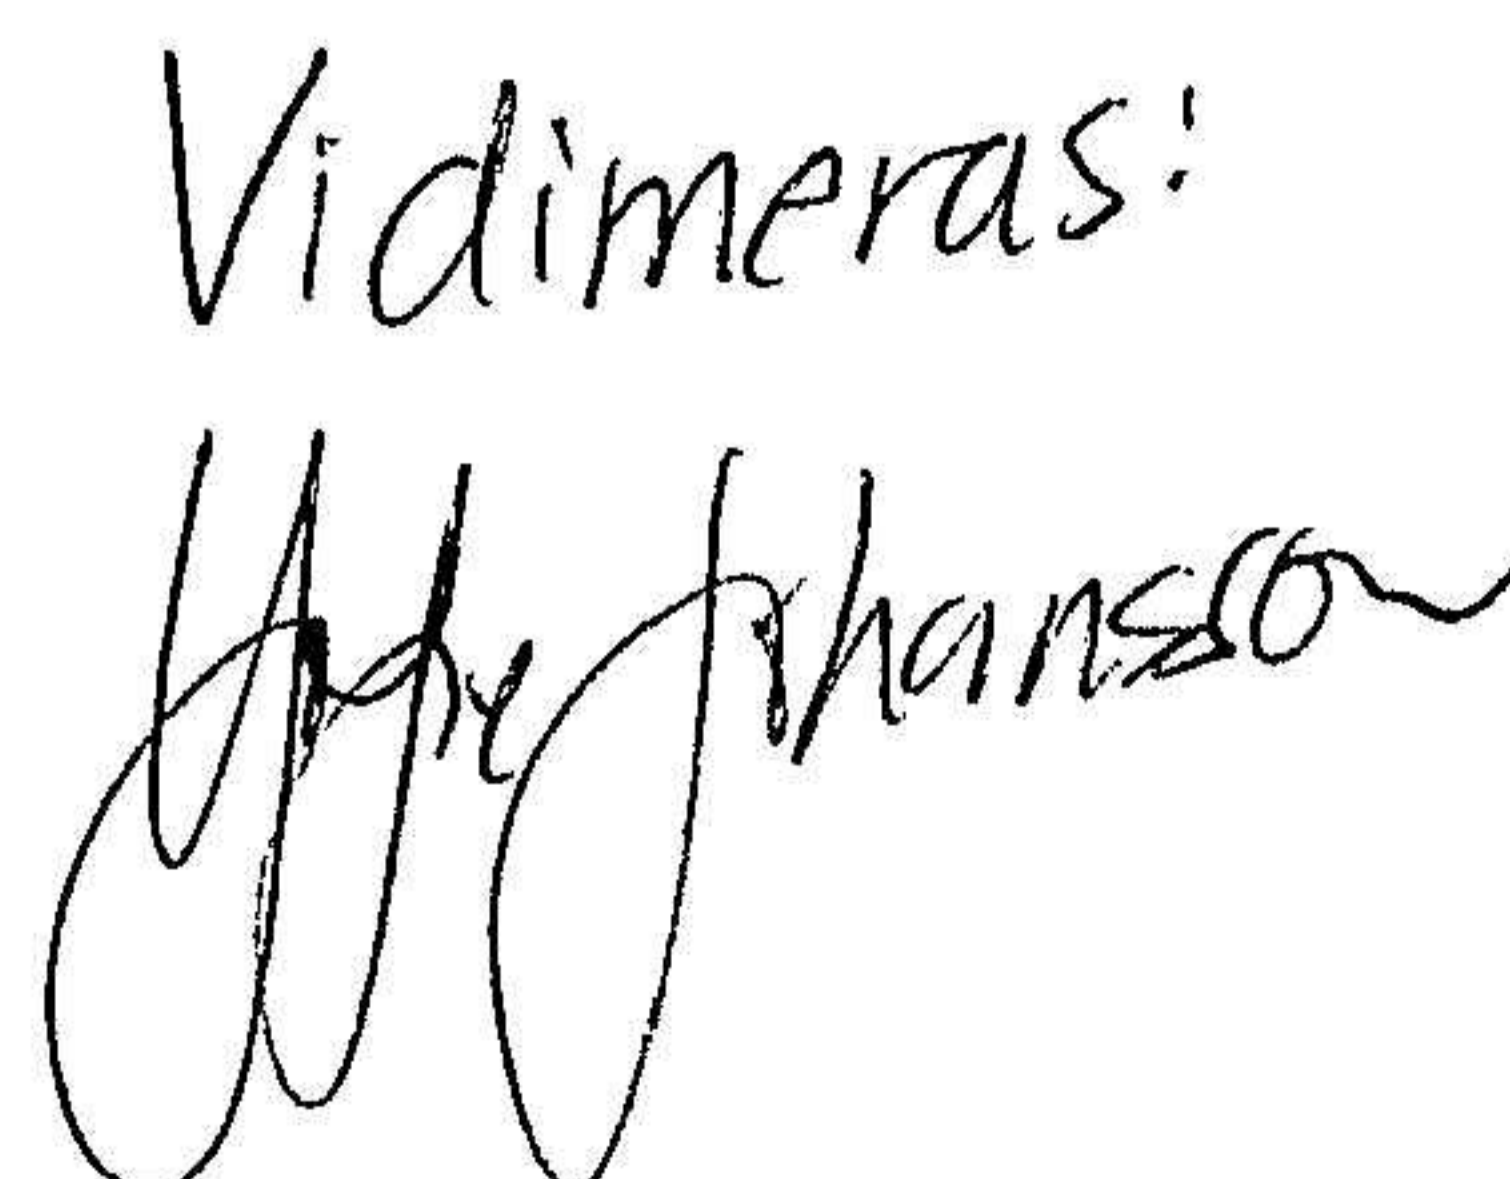 Vidimeras:
Johansson